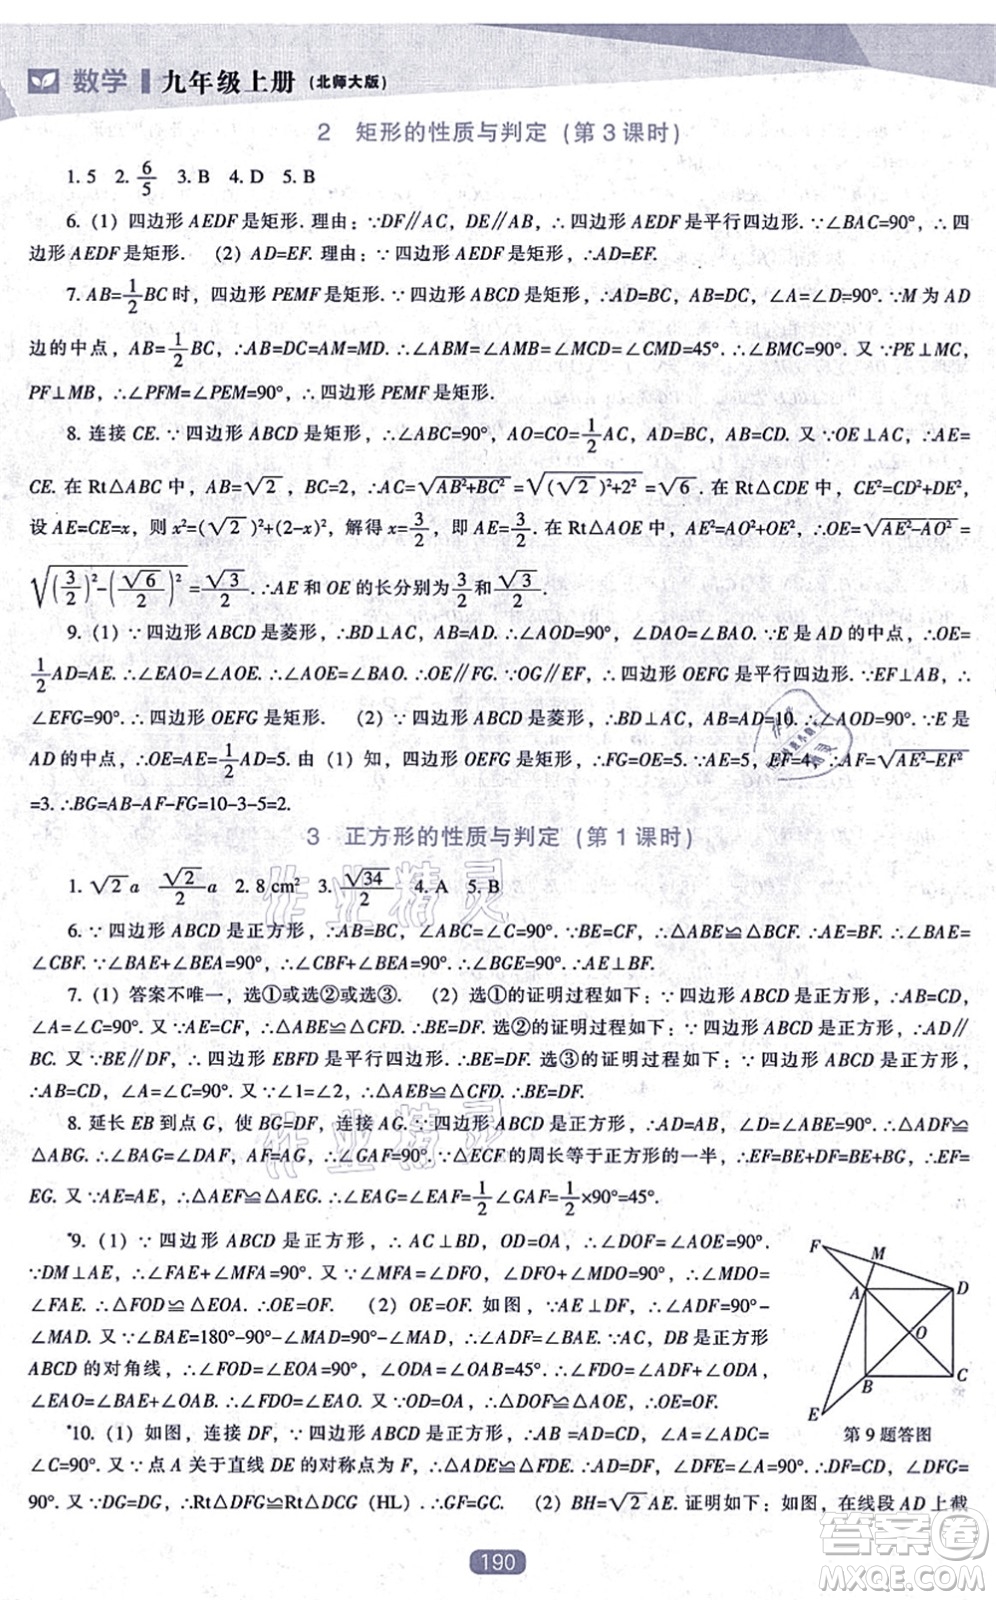 数学 九年级上册 (北师大版)
2 矩形的性质与判定（第 3 课时）
1. 5  2. 6/5  3. B  4. D  5. B
6. (1) 四边形 AEDF 是矩形. 理由：∵DF∥AC，DE∥AB，∴四边形 AEDF 是平行四边形. ∵∠BAC=90°，∴四
边形 AEDF 是矩形.  (2) AD=EF. 理由：∵四边形 AEDF 是矩形，∴AD=EF.
7. AB=1/2BC 时，四边形 PEMF 是矩形. ∵四边形 ABCD 是矩形，∴AD=BC，AB=DC，∠A=∠D=90°. ∵M 为 AD
边的中点，AB=1/2BC，∴AB=DC=AM=MD. ∴∠ABM=∠AMB=∠MCD=∠CMD=45°. ∴∠BMC=90°. 又∵PE⊥MC，
PF⊥MB，∴∠PFM=∠PEM=90°. ∴四边形 PEMF 是矩形.
8. 连接 CE. ∵四边形 ABCD 是矩形，∴∠ABC=90°，AO=CO=1/2AC，AD=BC，AB=CD. 又∵OE⊥AC，∴AE=
CE. 在 Rt△ABC 中，AB=√2，BC=2，∴AC=√(AB²+BC²)=√((√2)²+2²)=√6. 在 Rt△CDE 中，CE²=CD²+DE²，
设 AE=CE=x，则 x²=(√2)²+(2-x)²，解得 x=3/2，即 AE=3/2. 在 Rt△AOE 中，AE²=AO²+OE²，∴OE=√(AE²-AO²)=
√((3/2)²-(√6/2)²)=√3/2. ∴AE 和 OE 的长分别为3/2和√3/2.
9. (1) ∵四边形 ABCD 是菱形，∴BD⊥AC，AB=AD. ∴∠AOD=90°，∠DAO=∠BAO. ∵E 是 AD 的中点，∴OE=
1/2AD=AE. ∴∠EAO=∠AOE. ∴∠AOE=∠BAO. ∴OE∥FG. ∵OG∥EF，∴四边形 OEFG 是平行四边形. ∵EF⊥AB，∴
∠EFG=90°. ∴四边形 OEFG 是矩形.  (2) ∵四边形 ABCD 是菱形，∴BD⊥AC，AB=AD=10. ∴∠AOD=90°. ∵E 是
AD 的中点，∴OE=AE=1/2AD=5. 由 (1) 知，四边形 OEFG 是矩形，∴FG=OE=5. ∵AE=5，EF=4，∴AF=√(AE²-EF²)
=3. ∴BG=AB-AF-FG=10-3-5=2.
3 正方形的性质与判定（第 1 课时）
1. √2 a  √2/2 a  2. 8 cm²  3. √34/2  4. A  5. B
6. ∵四边形 ABCD 是正方形，∴AB=BC，∠ABC=∠C=90°. ∵BE=CF，∴△ABE≌△BCF. ∴AE=BF. ∴∠BAE=
∠CBF. ∵∠BAE+∠AEB=90°，∴∠CBF+∠AEB=90°. ∴∠BGE=90°. ∴AE⊥BF.
7. (1) 答案不唯一，选①或选②或选③.  (2) 选①的证明过程如下：∵四边形 ABCD 是正方形，∴AB=CD，
∠A=∠C=90°. 又∵AE=CF，∴△ABE≌△CDF. ∴BE=DF. 选②的证明过程如下：∵四边形 ABCD 是正方形，∴AD∥
BC. 又∵BE∥DF，∴四边形 EBFD 是平行四边形. ∴BE=DF. 选③的证明过程如下：∵四边形 ABCD 是正方形，
∴AB=CD，∠A=∠C=90°. 又∵∠1=∠2，∴△AEB≌△CFD. ∴BE=DF.
8. 延长 EB 到点 G，使 BG=DF，连接 AG. ∵四边形 ABCD 是正方形，∴AB=AD，∠ABE=∠D=90°. ∴△ADF≌
△ABG. ∴∠DAF=∠BAG，AF=AG. ∴∠GAF=90°. ∵△ECF 的周长等于正方形的一半，∴EF=BE+DF，∴EF=
EG. 又∵AE=AE，∴△AEF≌△AEG. ∴∠EAG=∠EAF=1/2∠GAF=1/2×90°=45°.
*9. (1) ∵四边形 ABCD 是正方形，∴AC⊥BD，OD=OA，∴∠DOF=∠AOE=90°.
∵DM⊥AE，∴∠FAE+∠MFA=90°. ∵∠MFA=∠DFO，∠DFO+∠MDO=90°，∴∠MDO=
∠FAE. ∴△FOD≌△EOA. ∴OE=OF.  (2) OE=OF. 如图，∵AE⊥DF，∴∠ADF=90°-
∠MAD. 又∵∠BAE=180°-90°-∠MAD=90°-∠MAD，∴∠ADF=∠BAE. ∵AC，DB 是正方形
ABCD 的对角线，∴∠FOD=∠EOA=90°，∠ODA=∠OAB=45°. ∴∠ADF+∠ODA=∠ODF，
∠EAO=∠BAE+∠BAO. ∴∠EAO=∠FDO. 又∵OD=OA，∴△ODF≌△OAE. ∴OE=OF.
*10. (1) 如图，连接 DF，∵四边形 ABCD 是正方形，∴AB =AD=CD，∠ADC=
∠C=90°. 又∵点 A 关于直线 DE 的对称点为 F，∴△ADE≌△FDE. ∴DA=DF，∠DFE=∠A=90°. ∴DF=CD，∠DFG=
90°. 又∵DG=DG，∴Rt△DFG≌Rt△DCG（HL）. ∴GF=GC.  (2) BH=√2AE. 证明如下：如图，在线段 AD 上截
F M A D O B C E
第 9 题答图
190
作业精灵
作业精灵
答案卷
MXQE.COM